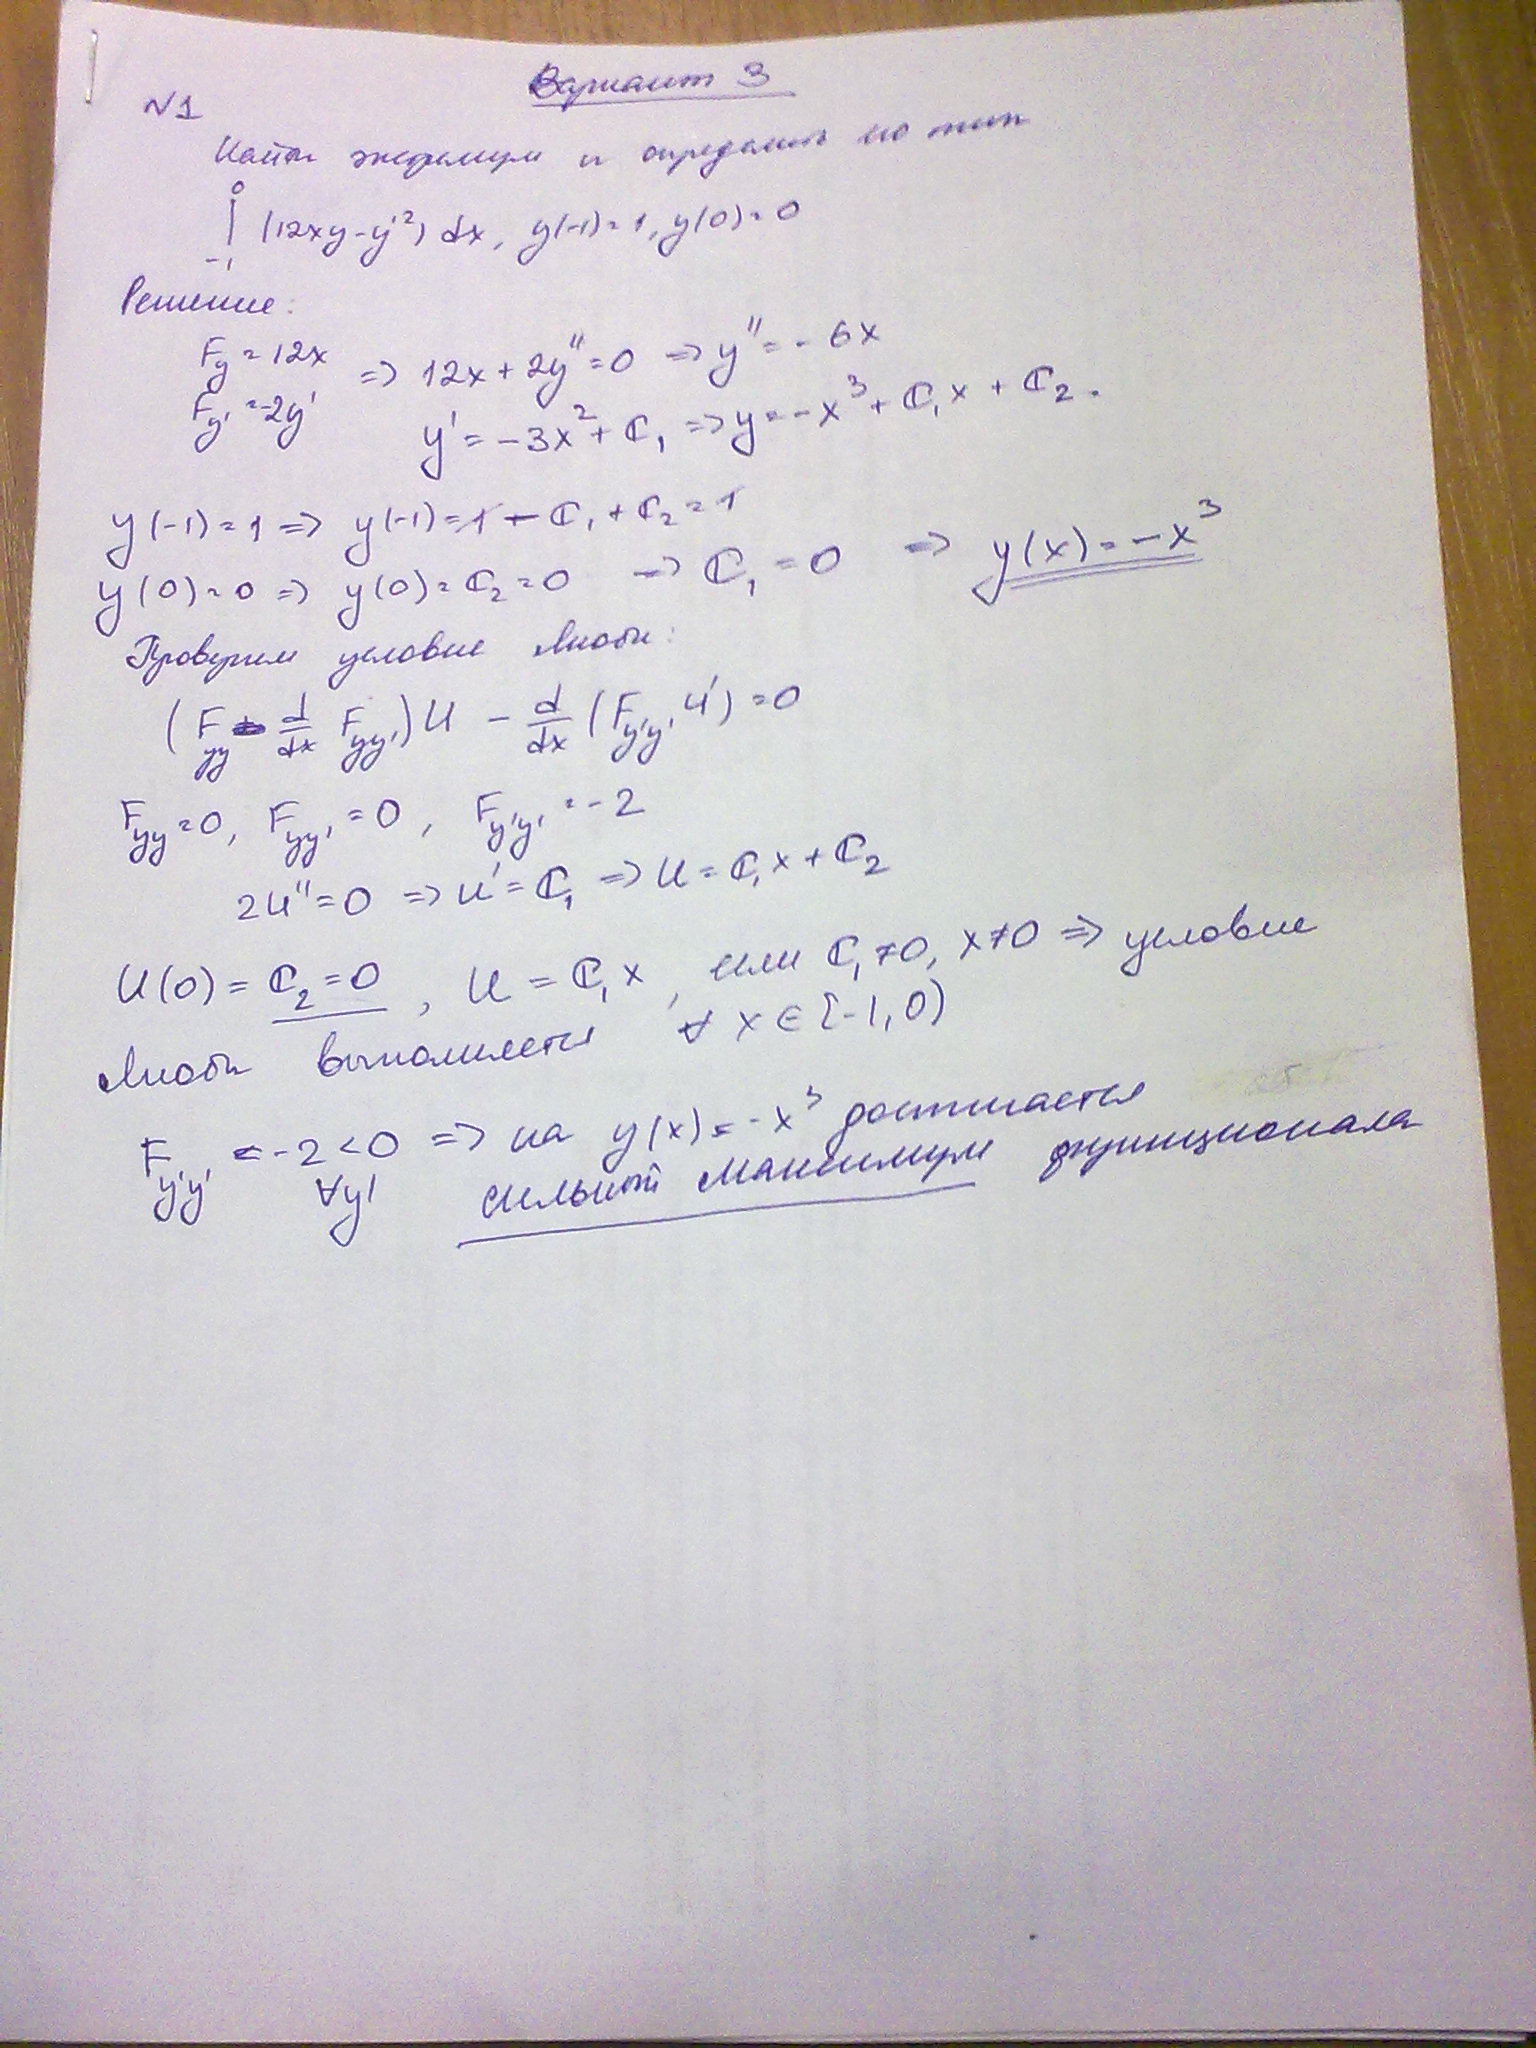 Вариант 3
N1
Найти экстремум и определить его тип
∫₋₁⁰ (12xy - y'²) dx, y(-1) = 1, y(0) = 0
Решение:
F_y = 12x
F_y' = -2y'
=> 12x + 2y'' = 0 => y'' = -6x
y' = -3x² + C₁ => y = -x³ + C₁x + C₂.
y(-1) = 1 => y(-1) = 1 - C₁ + C₂ = 1
y(0) = 0 => y(0) = C₂ = 0 => C₁ = 0 => y(x) = -x³
Проверим условие Якоби:
(F_yy - d/dx F_yy')U - d/dx (F_y'y' U') = 0
F_yy = 0, F_yy' = 0, F_y'y' = -2
2U'' = 0 => U' = C₁ => U = C₁x + C₂
U(0) = C₂ = 0, U = C₁x, если C₁ ≠ 0, x ≠ 0 => условие
Якоби выполняется ∀ x ∈ [-1, 0)
F_y'y' = -2 < 0 => на y(x) = -x³ достигается
∀y' сильный максимум функционала